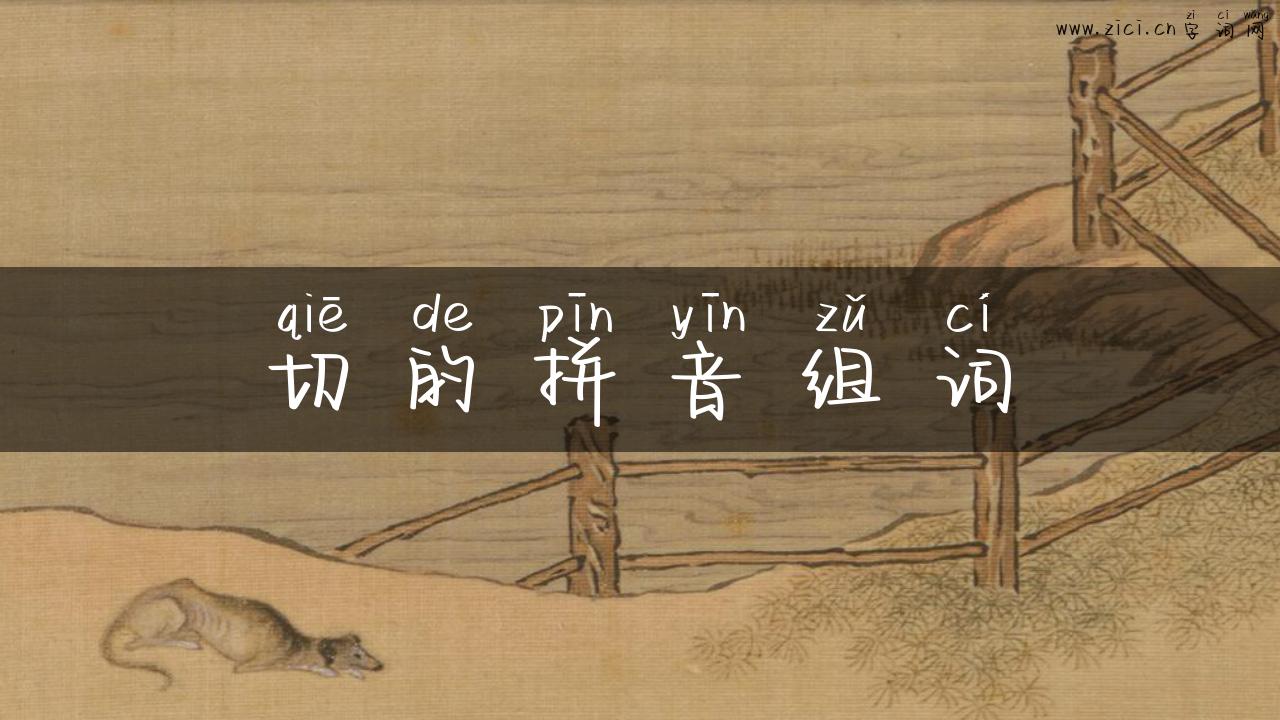 zì cí wǎng
www.zici.cn 字词网
qiē de pīn yīn zǔ cí
切的拼音组词